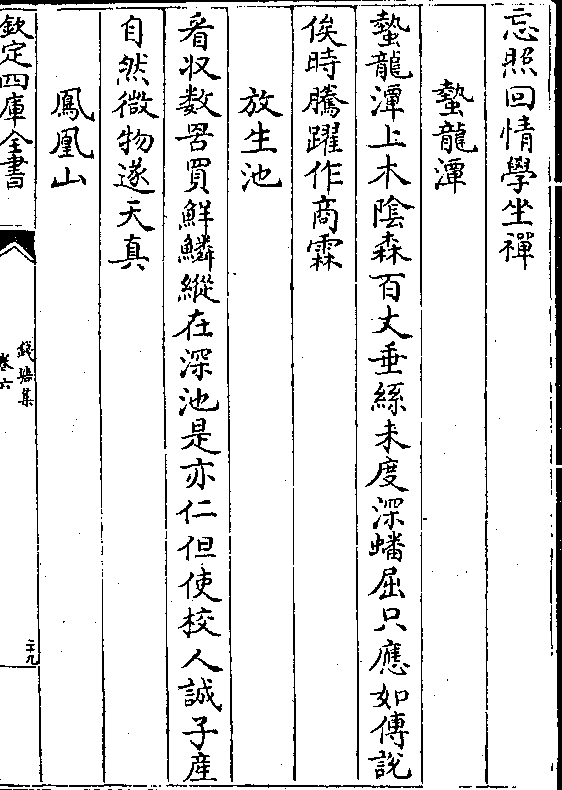 忘照回情學坐禪
蟄龍潭
蟄龍潭上木陰森百丈垂絲未度深蟠屈只應如傅說
俟時騰躍作商霖
放生池
看收数罟買鮮鱗縱在深池是亦仁但使校人誠子産
自然微物遂天真
鳳凰山
欽定四庫全書
錢塘集
卷六
二十九